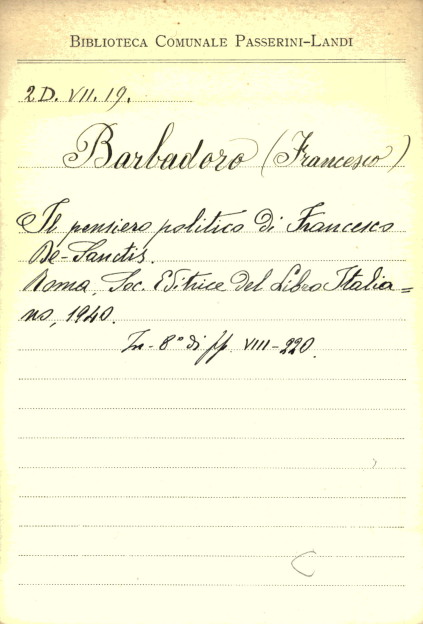 BIBLIOTECA COMUNALE PASSERINI-LANDI
2D. VII. 19.
Barbadoro (Francesco)
Il pensiero politico di Francesco
De-Sanctis.
Roma, Soc. Editrice del Libro Italia=
no, 1940.
In-8° di pp. VIII-220.